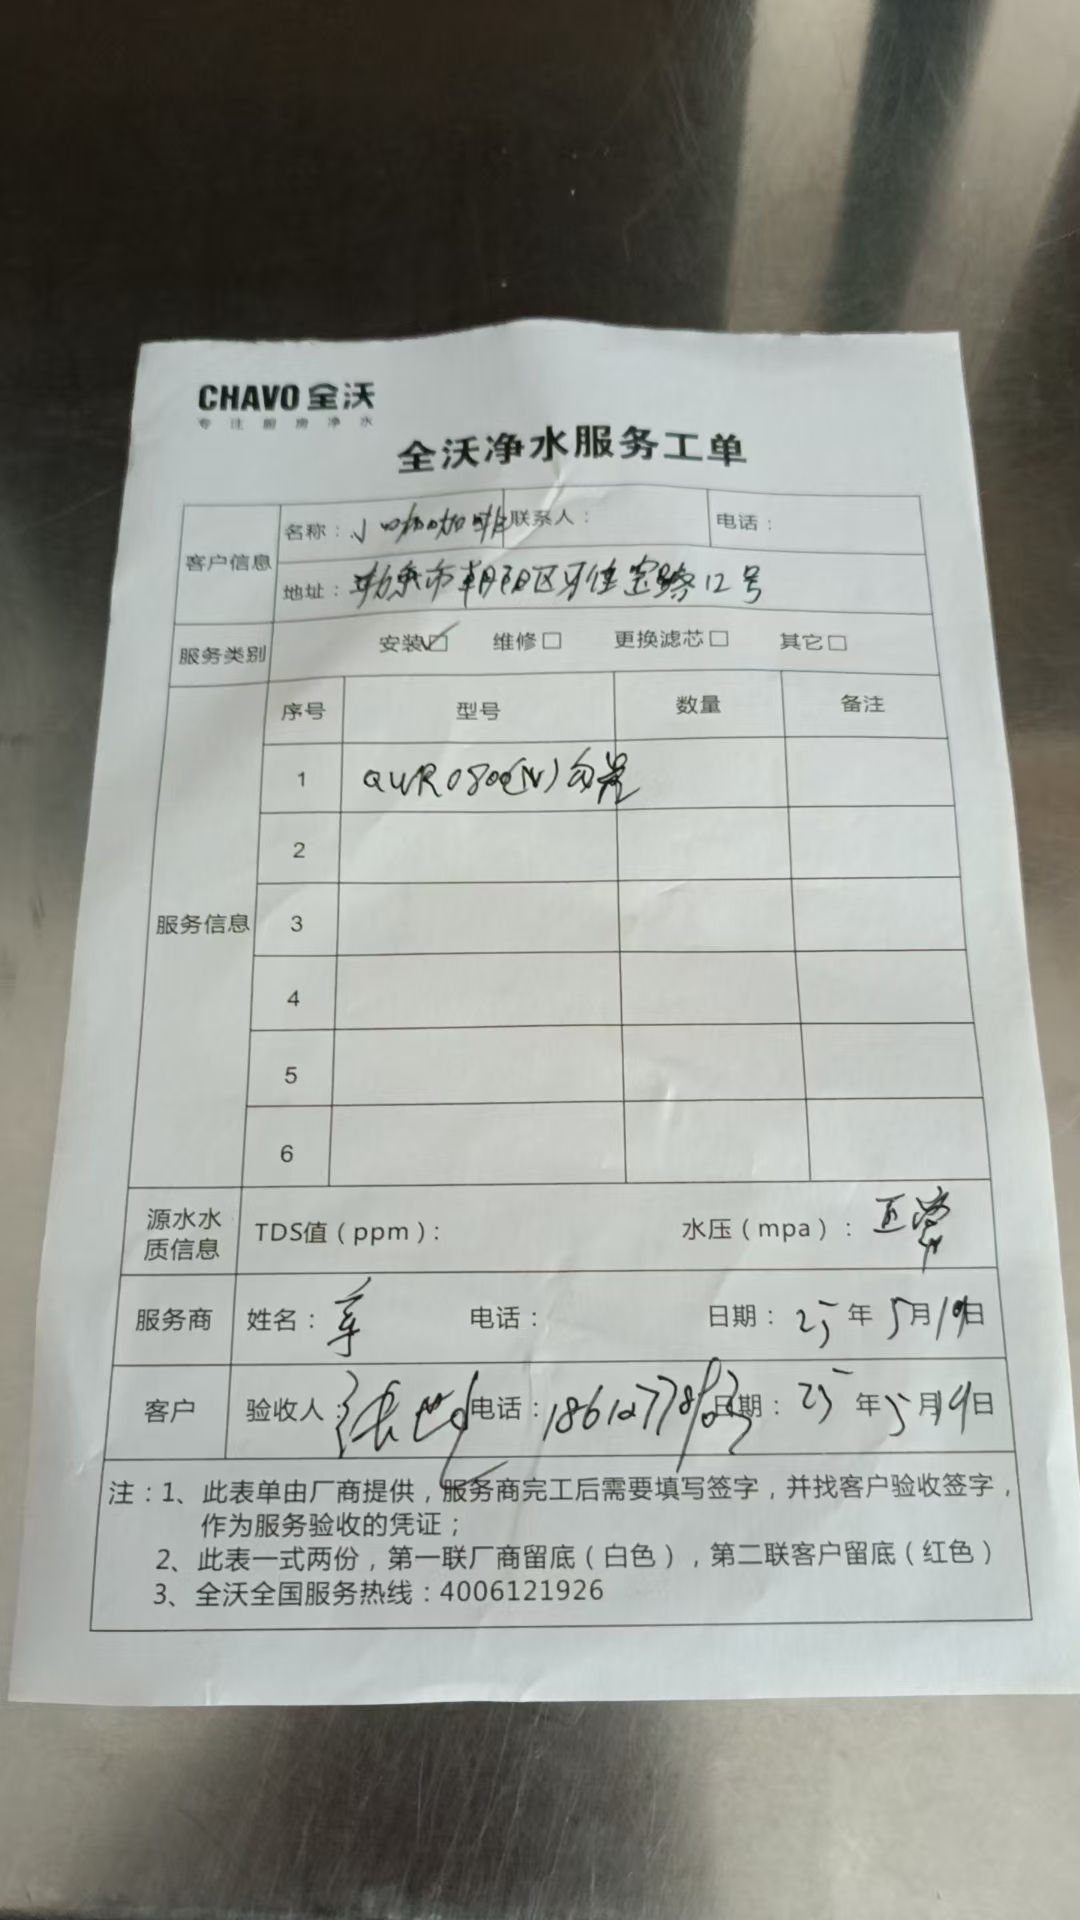 CHAVO 全沃
专注厨房净水
全沃净水服务工单
客户信息 名称：小咖咖啡 联系人： 电话：
地址： 市朝阳区 路12号
服务类别 安装☑ 维修□ 更换滤芯□ 其它□
服务信息 序号 型号 数量 备注
1
2
3
4
5
6
源水水质信息 TDS值（ppm）： 水压（mpa）：正常
服务商 姓名： 电话： 日期：25年5月19日
客户 验收人：张 电话： 日期：25年5月19日
注：1、此表单由厂商提供，服务商完工后需要填写签字，并找客户验收签字，
作为服务验收的凭证；
2、此表一式两份，第一联厂商留底（白色），第二联客户留底（红色）
3、全沃全国服务热线：4006121926